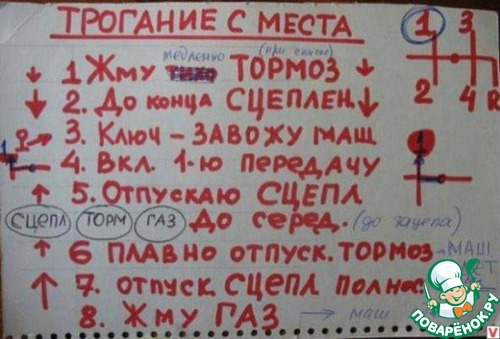 ТРОГАНИЕ С МЕСТА
1 3
2 4 R
медленно (при спуске)
↓ 1 Жму ТОРМОЗ ↓
↓ 2. До конца СЦЕПЛЕН. ↓
3. Ключ – ЗАВОЖУ МАШ
1
4. ВКЛ. 1-ю ПЕРЕДАЧУ
↑ 5. Отпускаю СЦЕПЛ
СЦЕПЛ ТОРМ ГАЗ До серед. (до зацепа)
↑ 6 ПЛАВНО отпуск. ТОРМОЗ МАШ.
↑ 7. отпуск СЦЕПЛ полнос
8. Жму ГАЗ → маш
ПОВАРЁНОК.РУ